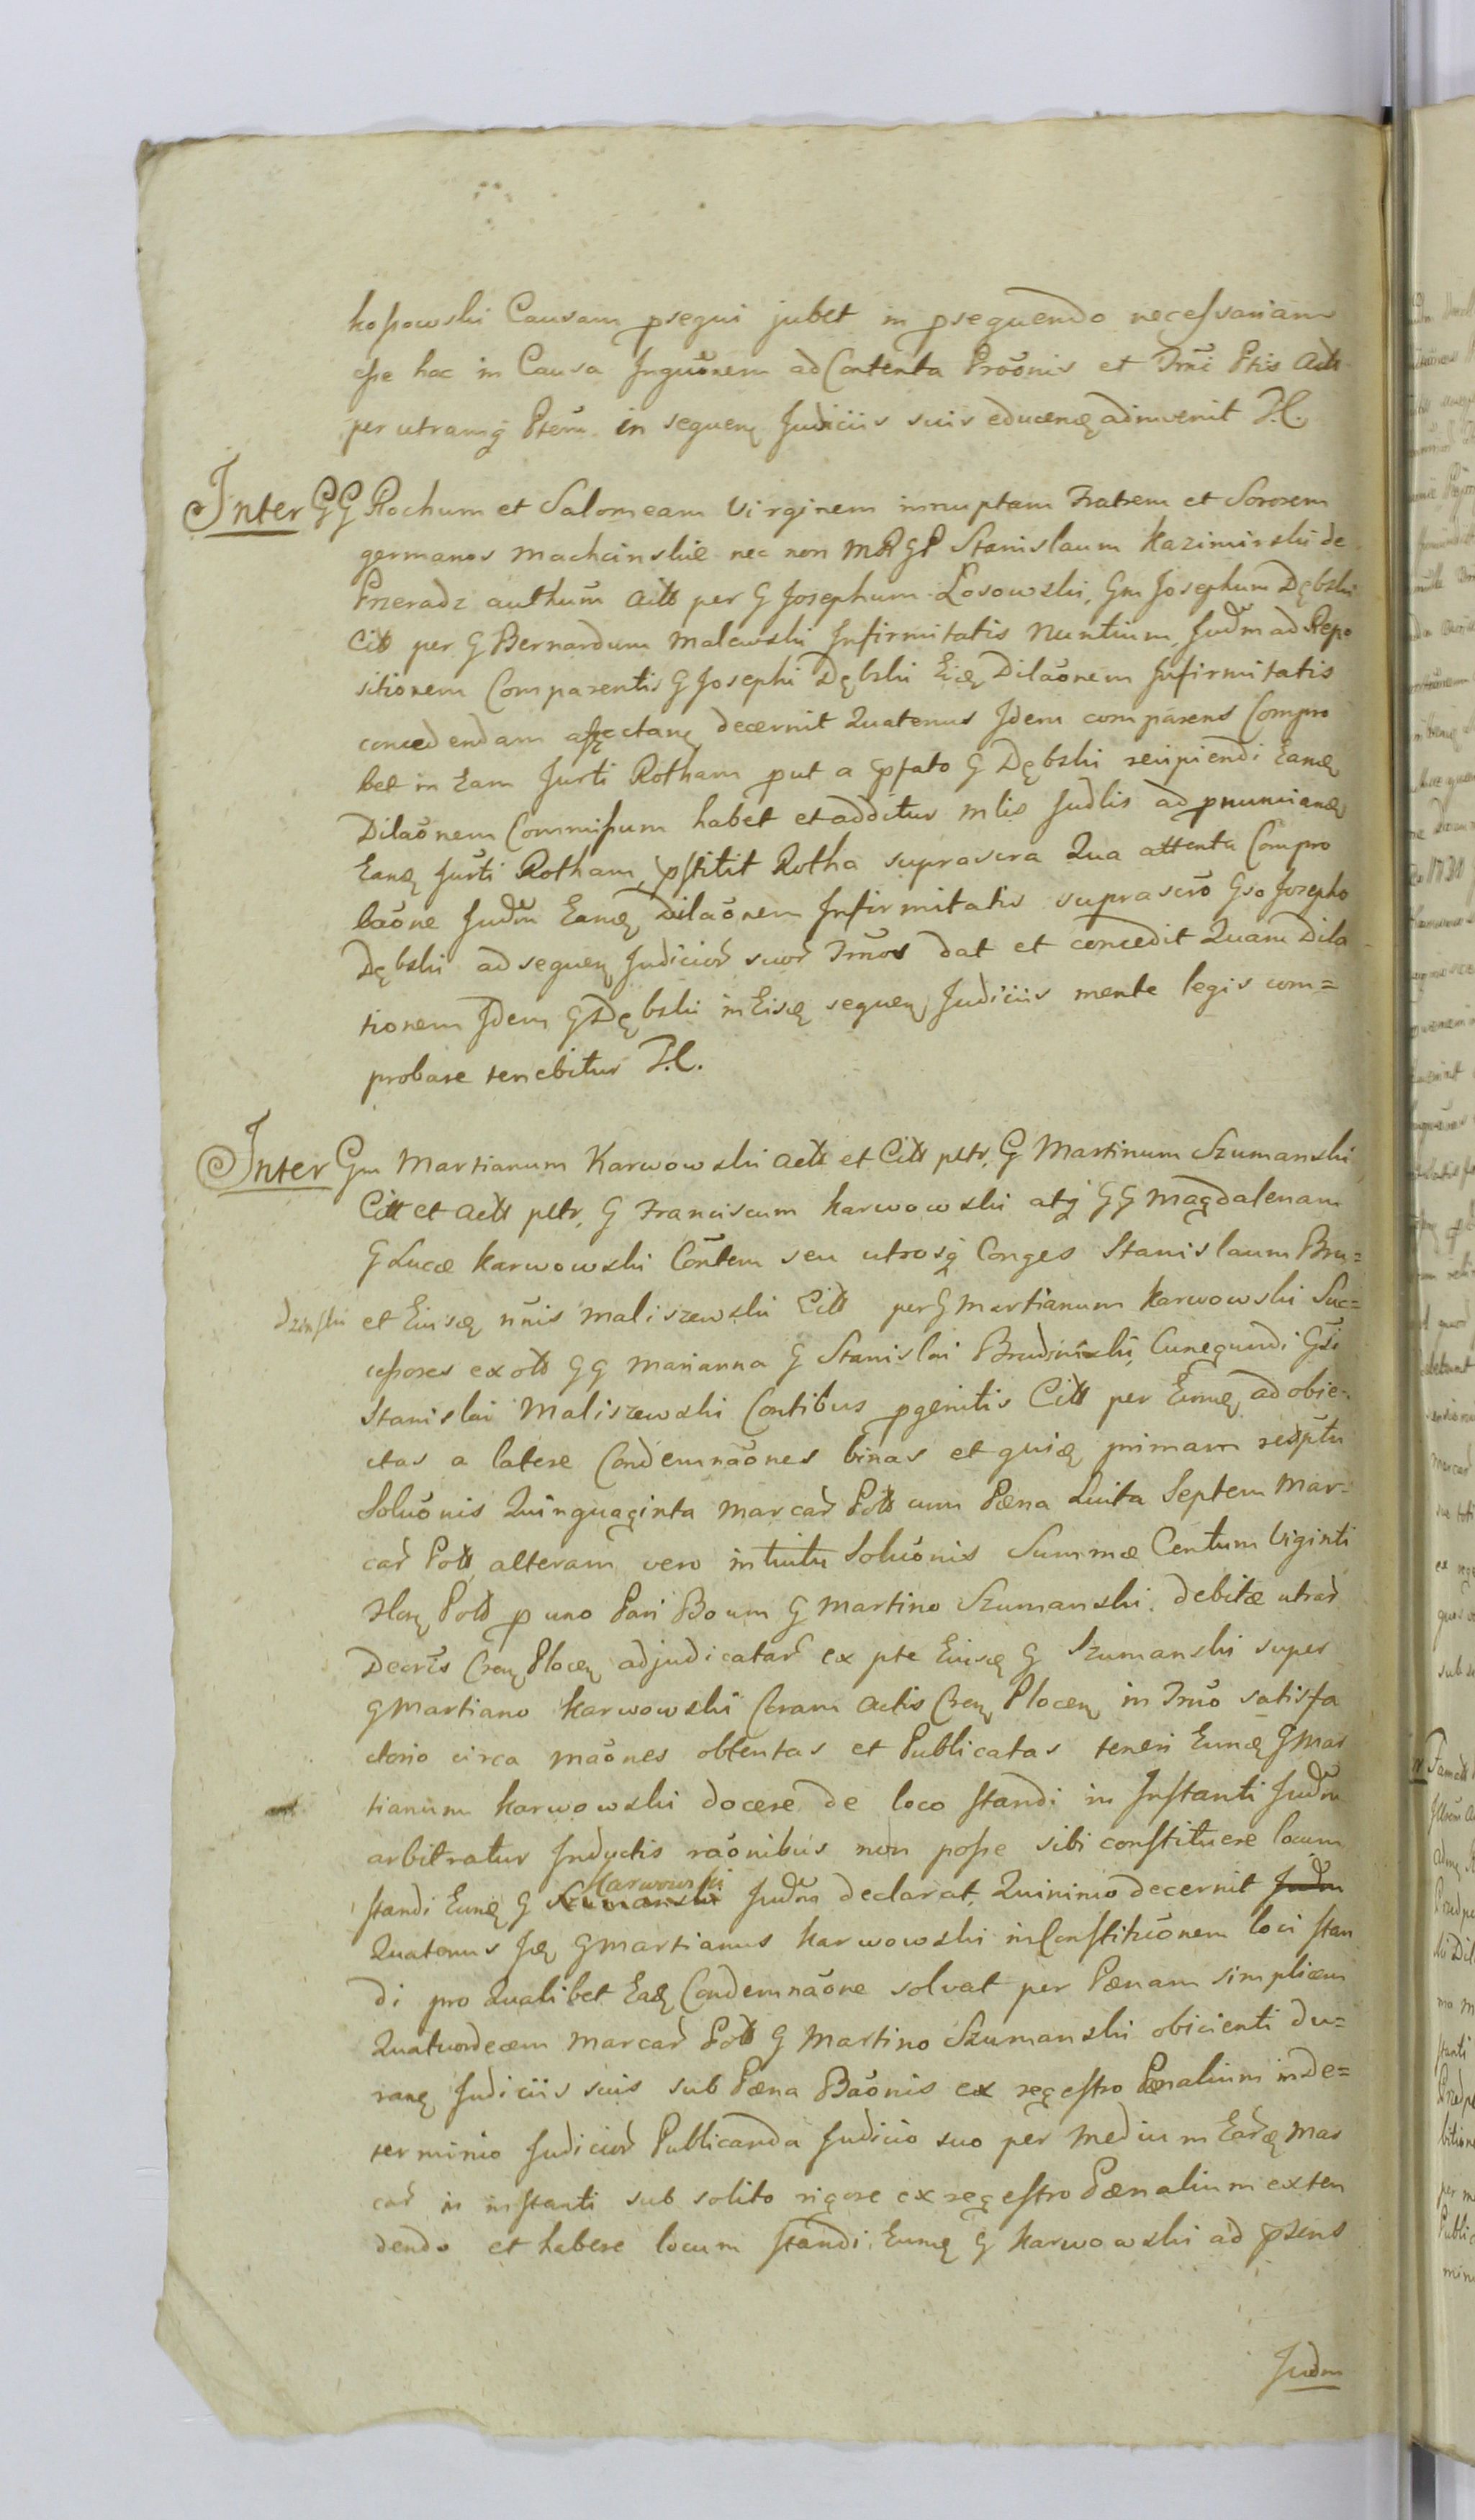 kossowski Causam psequi jubet in psequendo necessariam
esse hac in Causa Inquõnem ad Contenta Proõnis et Trni Ptis Act
per utramq Ptem in sequen Judiciis suis educend adinvenit P.C.
Inter GG Rochum et Salomeam Virginem innuptam Fratrem et Sororem
germanos Machcinskie nec non MRGP Stanislaum Kazimirski de
Przeradz authum Actt per G Josephum Łosowski, Gm Josephum Dębski
Citt per G Bernardum Malewski Infirmitatis Nuntium, Judm ad Repo
sitionem Comparentis G Josephi Dębski Eid Dilaõnem Infirmitatis
concedendam affectan decernit Quatenus Idem comparens Compro
bet in Eam Jurti Rotham put a pfato G Dębski recipiendi Eand
Dilaõnem Commissum habet et additur mlis Judlis ad pnunciand
Eand Jurti Rotham, pstitit Rotha suprascra Qua attenta Compro
baõne Judm Eand Dilaõnem Infirmitatis suprascro Gso Josepho
Dębski ad sequen Judicior suor Trnos dat et concedit Quam Dila
tionem Idem G Dębski in Eisd sequen Judiciis mente legis com=
probare tenebitur P.C.
Inter Gm Martianum Karwowski Actt et Citt pltr, G Martinum Szumanski
Citt et Actt pltr, G Franciscum Karwowski atq GG Magdalenam
G Lucæ Karwowski Contem seu utrosq Conges Stanislaum Bru=
dzinski et Eiusd nnis Maliszewski Citt per G Martianum Karwowski Suc=
cessores ex ott GG Marianna G Stanislai Brudzinski, Cunegundi Gsi
Stanislai Maliszewski Contibus pgenitis Citt per Eund ad obie=
ctas a latere Condemnaõnes binas et quid primam respttu
Soluõnis Quinquaginta Marcar Potts cum Pæna Luita Septem Mar=
car Pott, alteram vero intuitu Soluõnis Summæ Centum Viginti
flor Pott p uno Pari Boum G Martino Szumanski debitæ utrar
Decris Cren Plocen adjudicatar ex pte Eiusd G Szumanski super
G Martiano Karwowski Coram Actis Cren Plocen in Trno satisfa
ctorio circa maõnes obtentas et Publicatas teneri Eund G Mar
tianum Karwowski docere de loco standi in Instanti Judm
arbitratur Inductis raõnibus non posse sibi constituere locum
standi Eund G Szumanski Karwowski Judm declarat, Quinimo decernit Judm
Quatenus Id G Martianus Karwowski in Constituõnem loci stan
di pro Qualibet Ead Condemnaõne solvat per Pænam simplicem
Quatuordecem Marcar Pott G Martino Szumanski obicienti du=
ran Judiciis suis sub Pæna Baõnis ex regestro Pænalium in de=
terminio Judicior Publicanda Judicio suo per medium Eard Mar
car in instanti sub solito rigore ex regestro Pænalium exten
dendo et habere locum standi Eund G Karwowski ad pzens
Judm